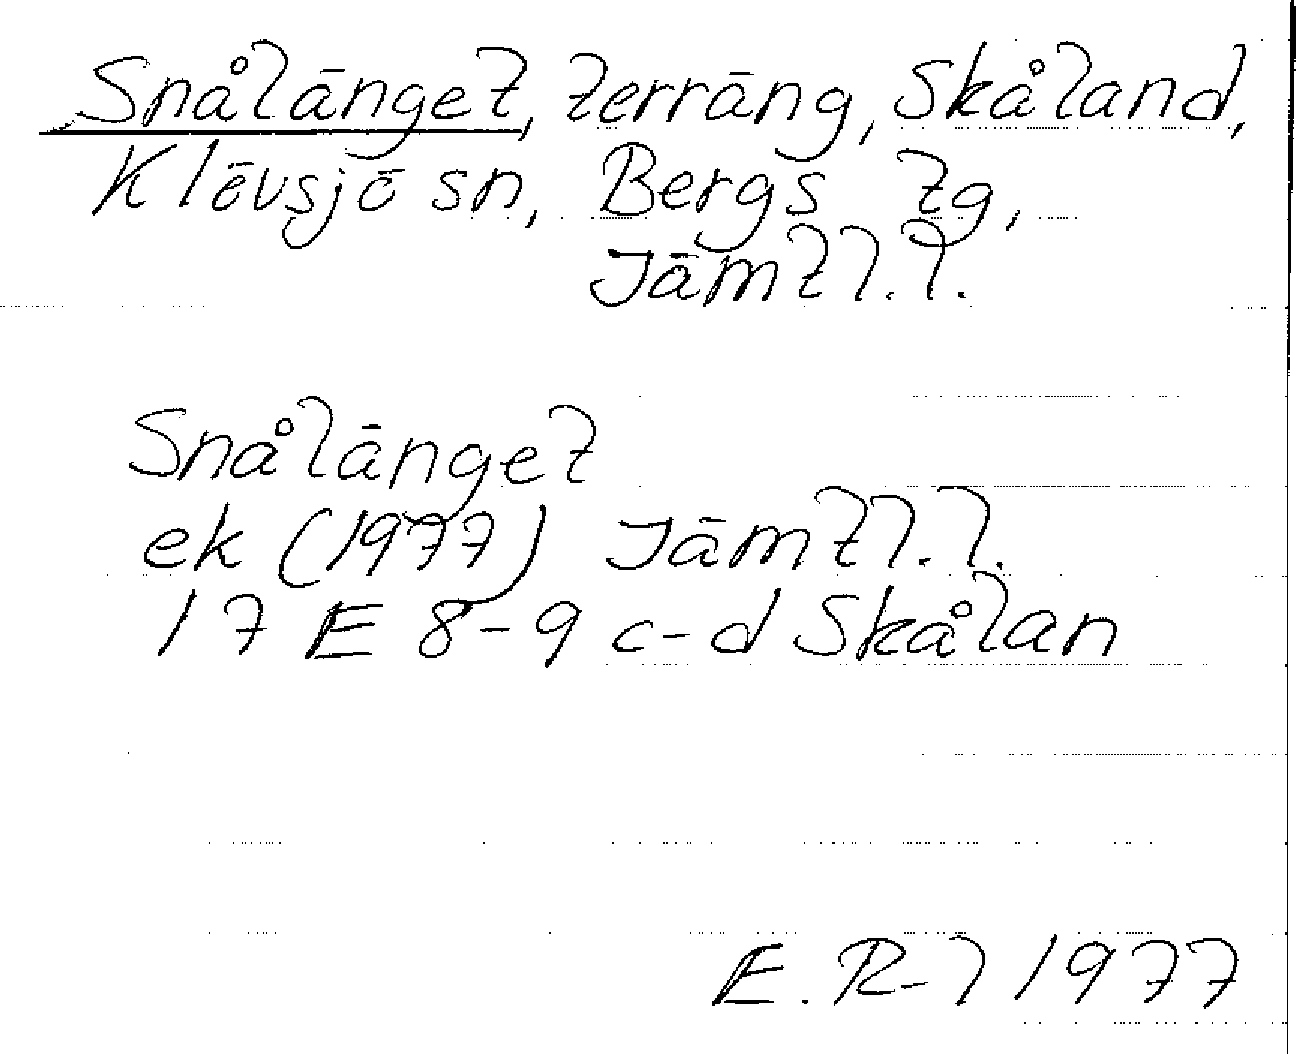 Snålänget, terräng, Skåland,
Klövsjö sn, Bergs tg,
Jämtl.l.
Snålänget
ek (1977) Jämtl.l.
17 E 8-9 c-d Skålan
E. R-l 1977